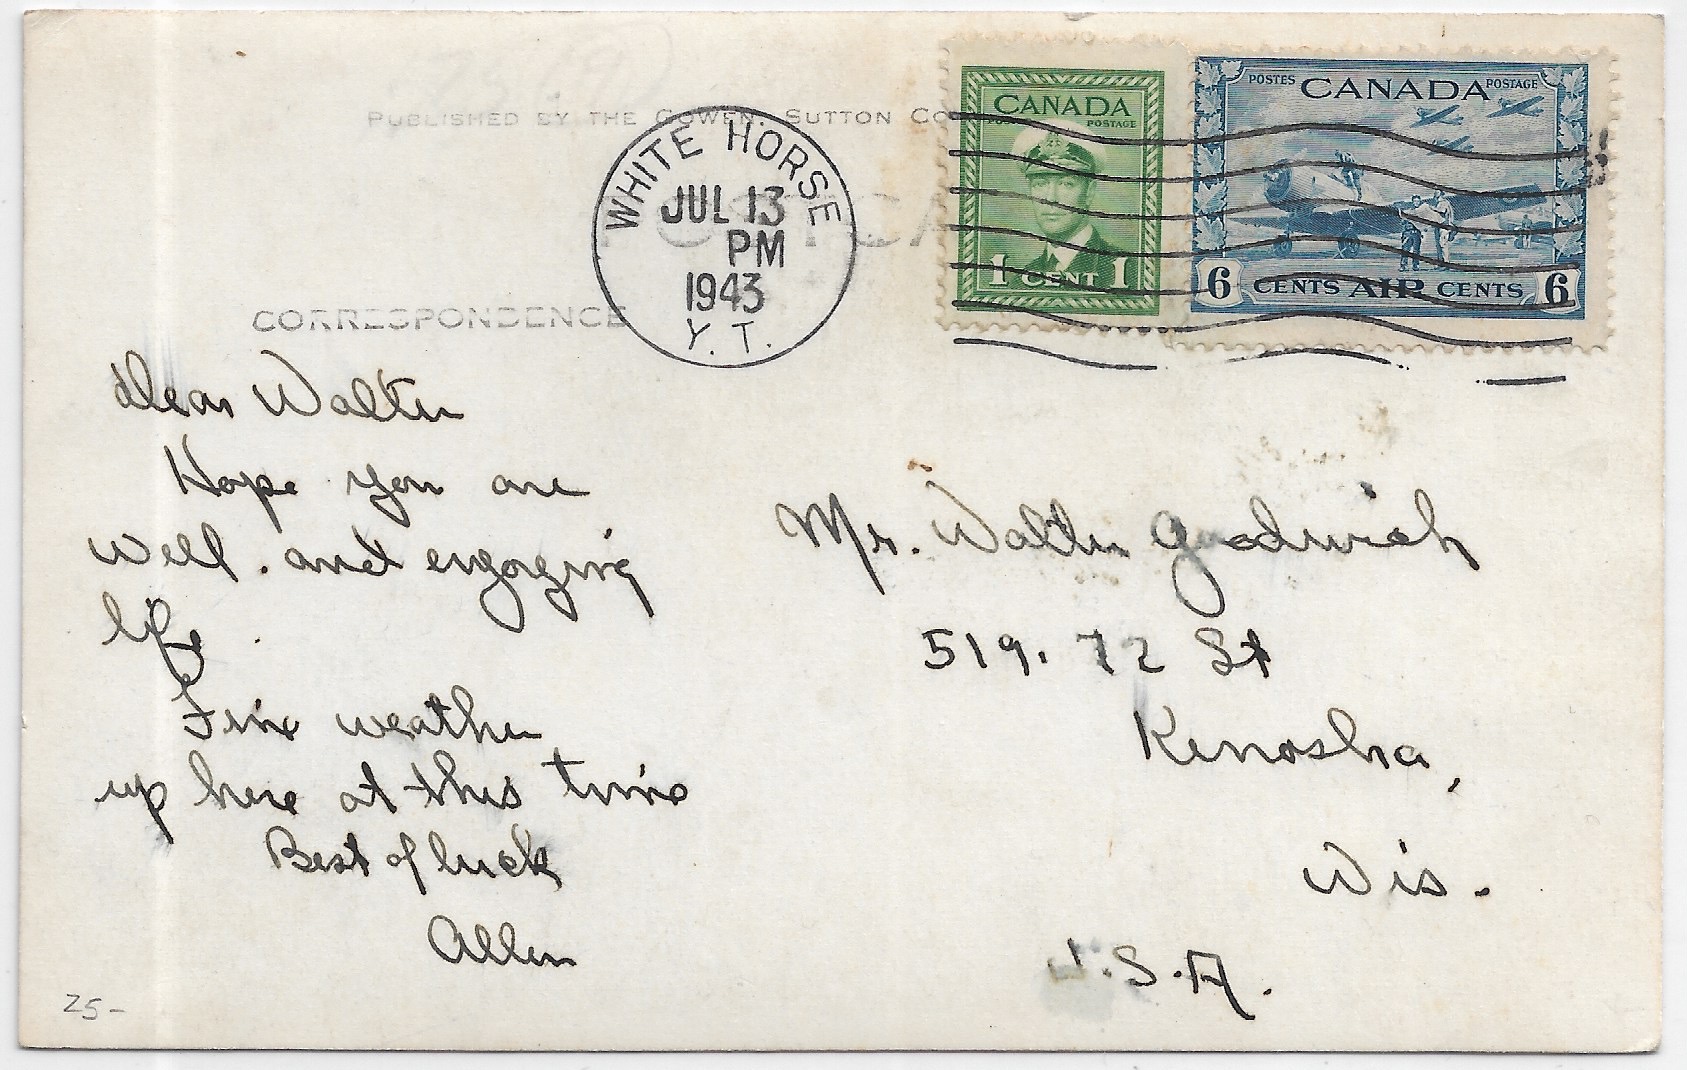 PUBLISHED BY THE GOWEN, SUTTON CO
CANADA
POSTAGE
1 CENT 1
POSTES CANADA POSTAGE
6 CENTS AIR CENTS 6
WHITE HORSE
JUL 13
PM
1943
Y. T.
POSTCA
CORRESPONDENCE
Dear Walter
Hope you are
well. and engoying
life.
Fine weather
up here at this time
Best of luck
Allen
Mr. Walter Goodwich
519. 72 St
Kenosha,
Wis.
U.S.A.
25-